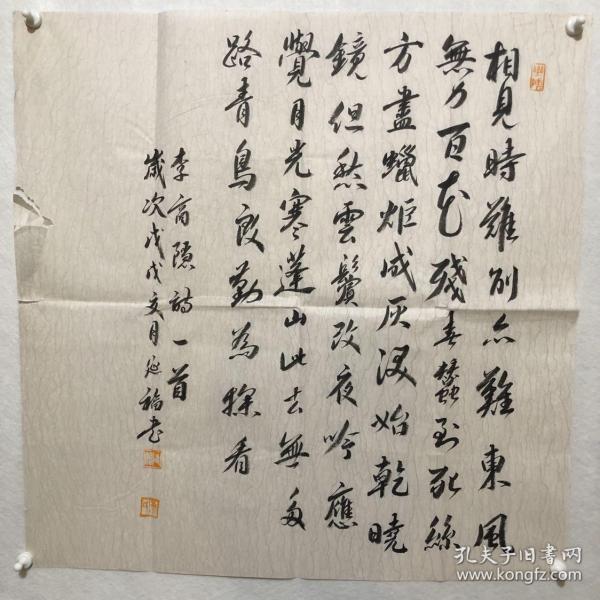 相見時難別亦難東風
無力百花殘春蠶到死絲
方盡蠟炬成灰淚始乾曉
鏡但愁雲鬢改夜吟應
覺月光寒蓬山此去無多
路青鳥殷勤為探看
李商隱詩一首
歲次戊戌文月延福書
孔夫子旧书网
www.kongfz.com